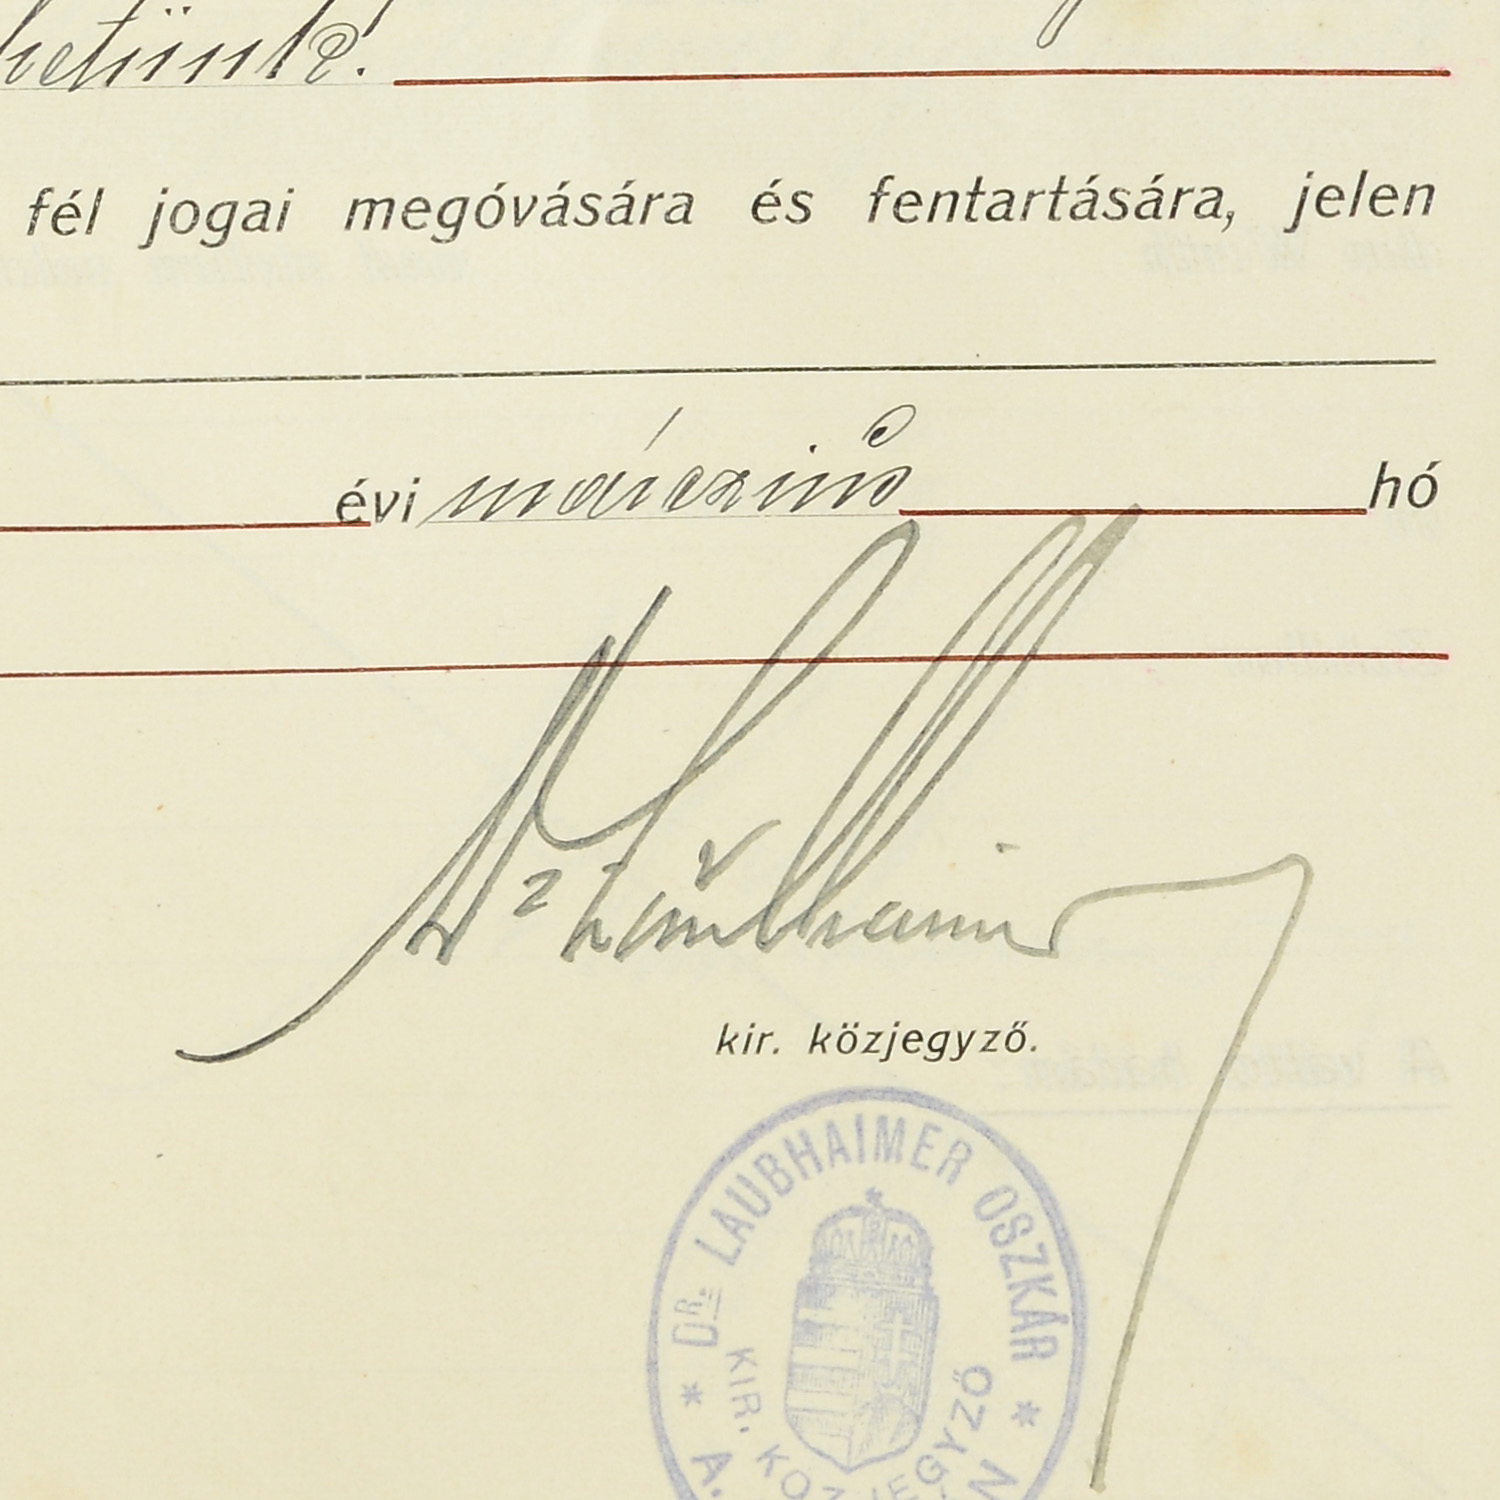 fél jogai megóvására és fentartására, jelen
évi márczius hó
Dr Laubhaimer
kir. közjegyző.
* DR. LAUBHAIMER OSZKÁR *
KIR. KÖZJEGYZŐ